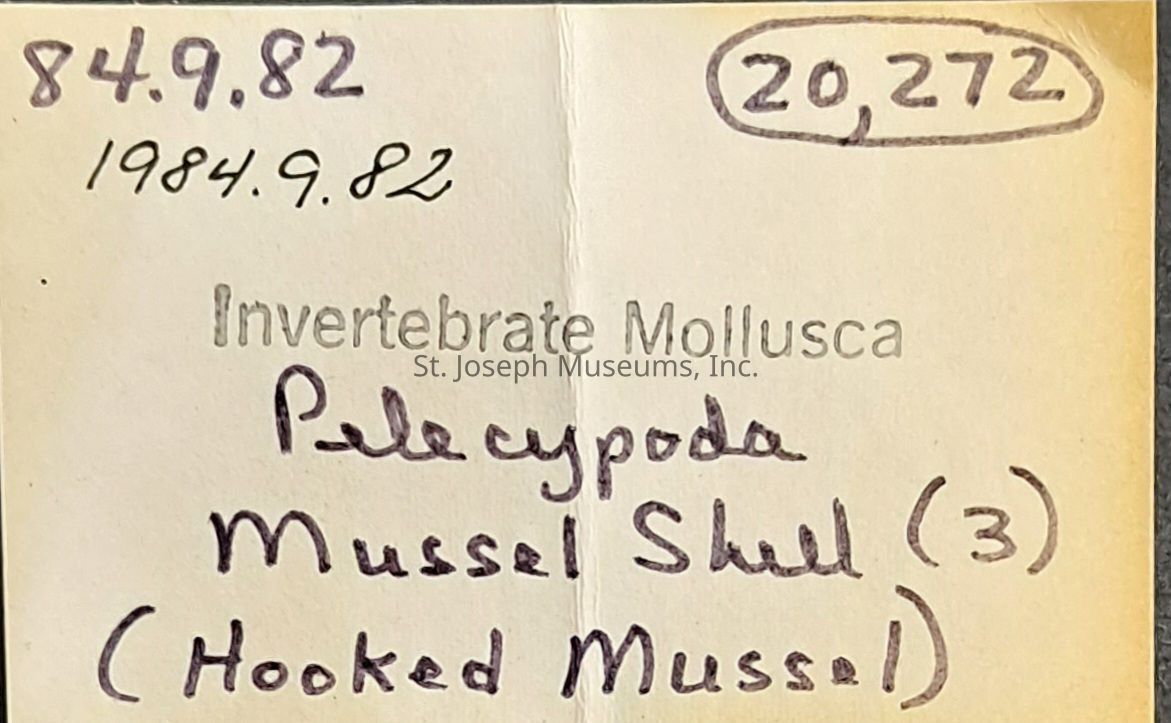 84.9.82 20,272
1984.9.82
Invertebrate Mollusca
St. Joseph Museums, Inc.
Pelecypoda
Mussel Shell (3)
(Hooked Mussel)